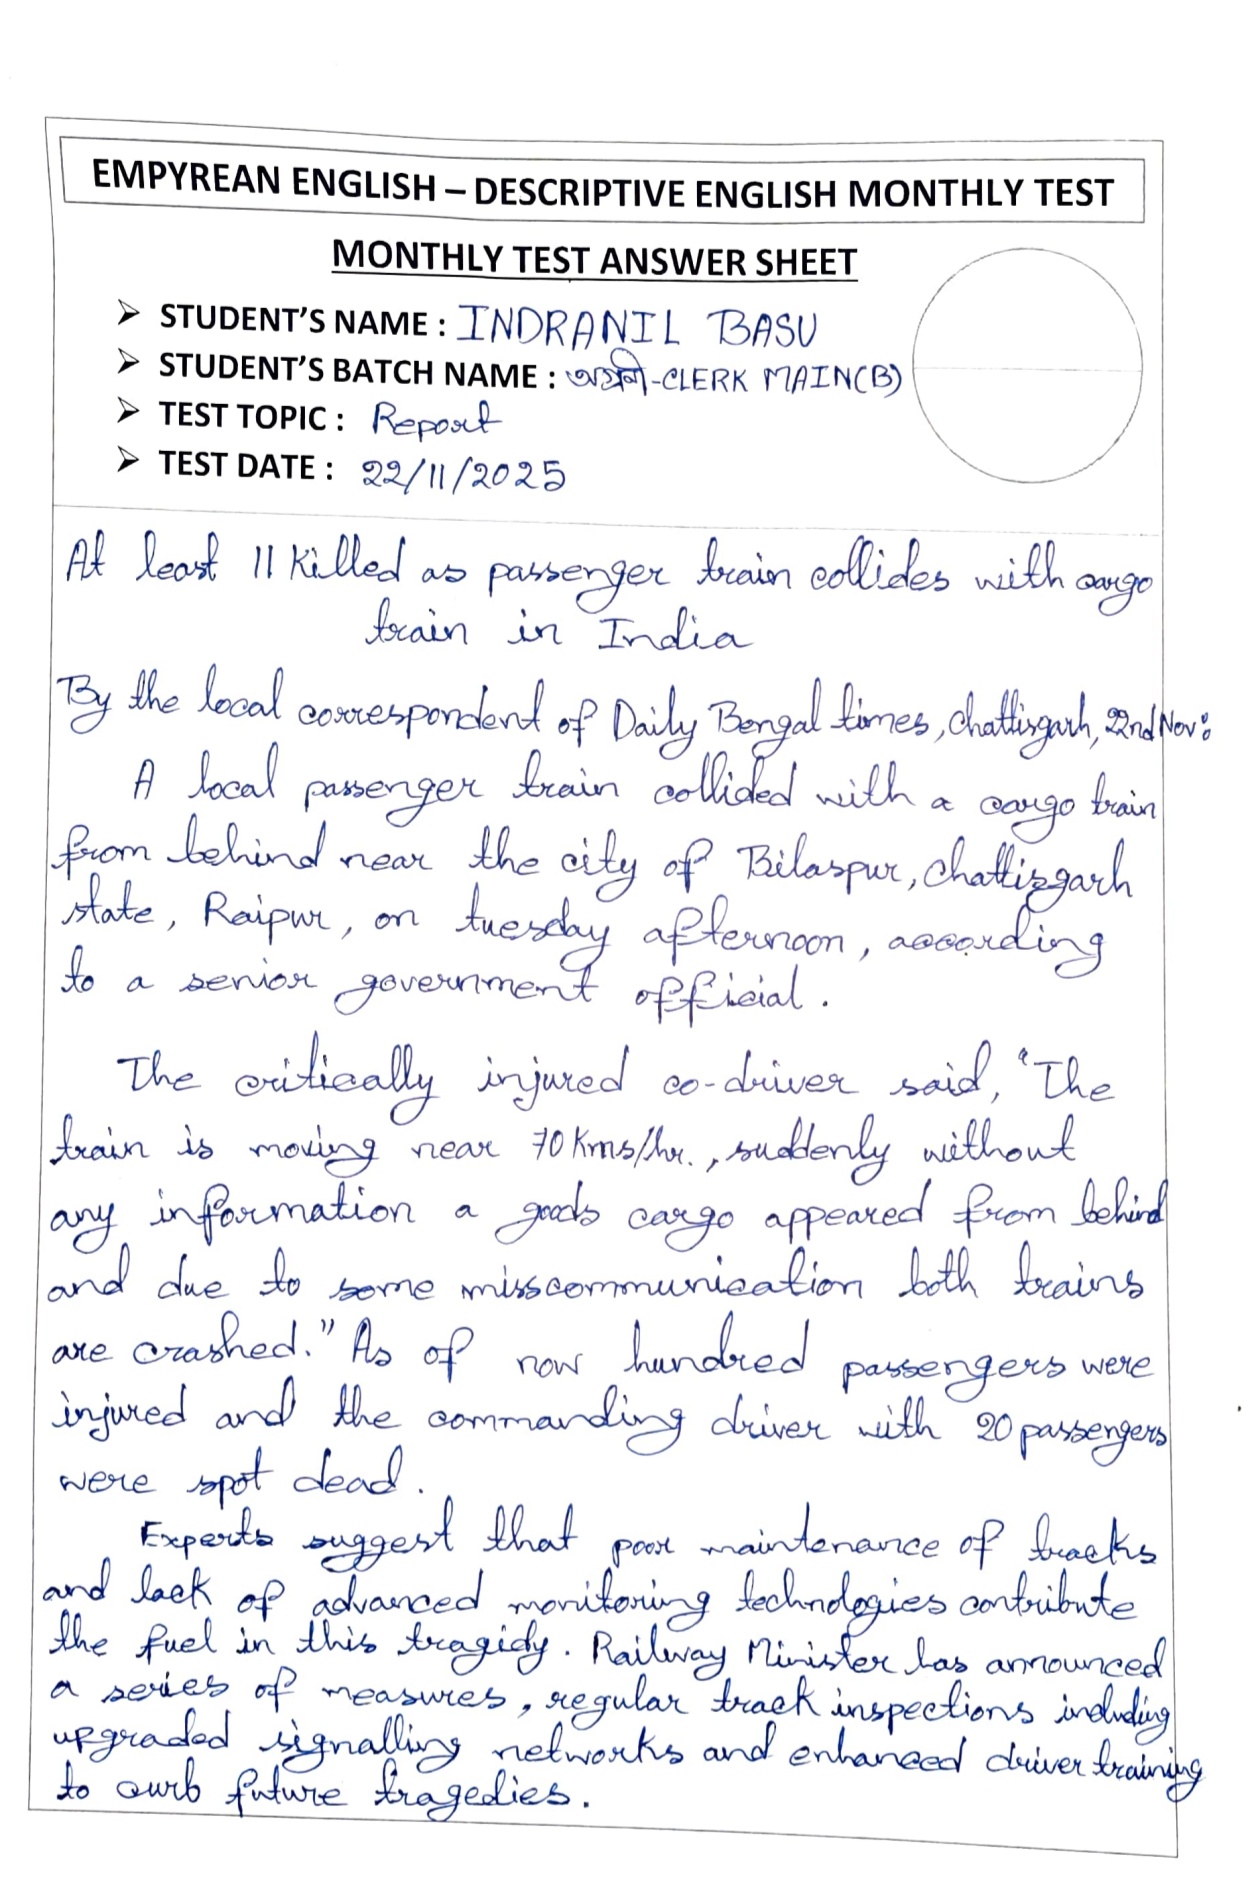 EMPYREAN ENGLISH – DESCRIPTIVE ENGLISH MONTHLY TEST
MONTHLY TEST ANSWER SHEET
➤ STUDENT'S NAME : INDRANIL BASU
➤ STUDENT'S BATCH NAME : অগ্রণী-CLERK MAIN(B)
➤ TEST TOPIC : Report
➤ TEST DATE : 22/11/2025
At least 11 killed as passenger train collides with cargo
train in India
By the local correspondent of Daily Bengal times, Chattisgarh, 22nd Nov:
A local passenger train collided with a cargo train
from behind near the city of Bilaspur, Chattisgarh
state, Raipur, on tuesday afternoon, according
to a senior government official.
The critically injured co-driver said, "The
train is moving near 70 Kms/hr., suddenly without
any information a goods cargo appeared from behind
and due to some misscommunication both trains
are crashed." As of now hundred passengers were
injured and the commanding driver with 20 passengers
were spot dead.
Experts suggest that poor maintenance of tracks
and lack of advanced monitoring technologies contribute
the fuel in this tragidy. Railway Minister has announced
a series of measures, regular track inspections including
upgraded signalling networks and enhanced driver training
to curb future tragedies.